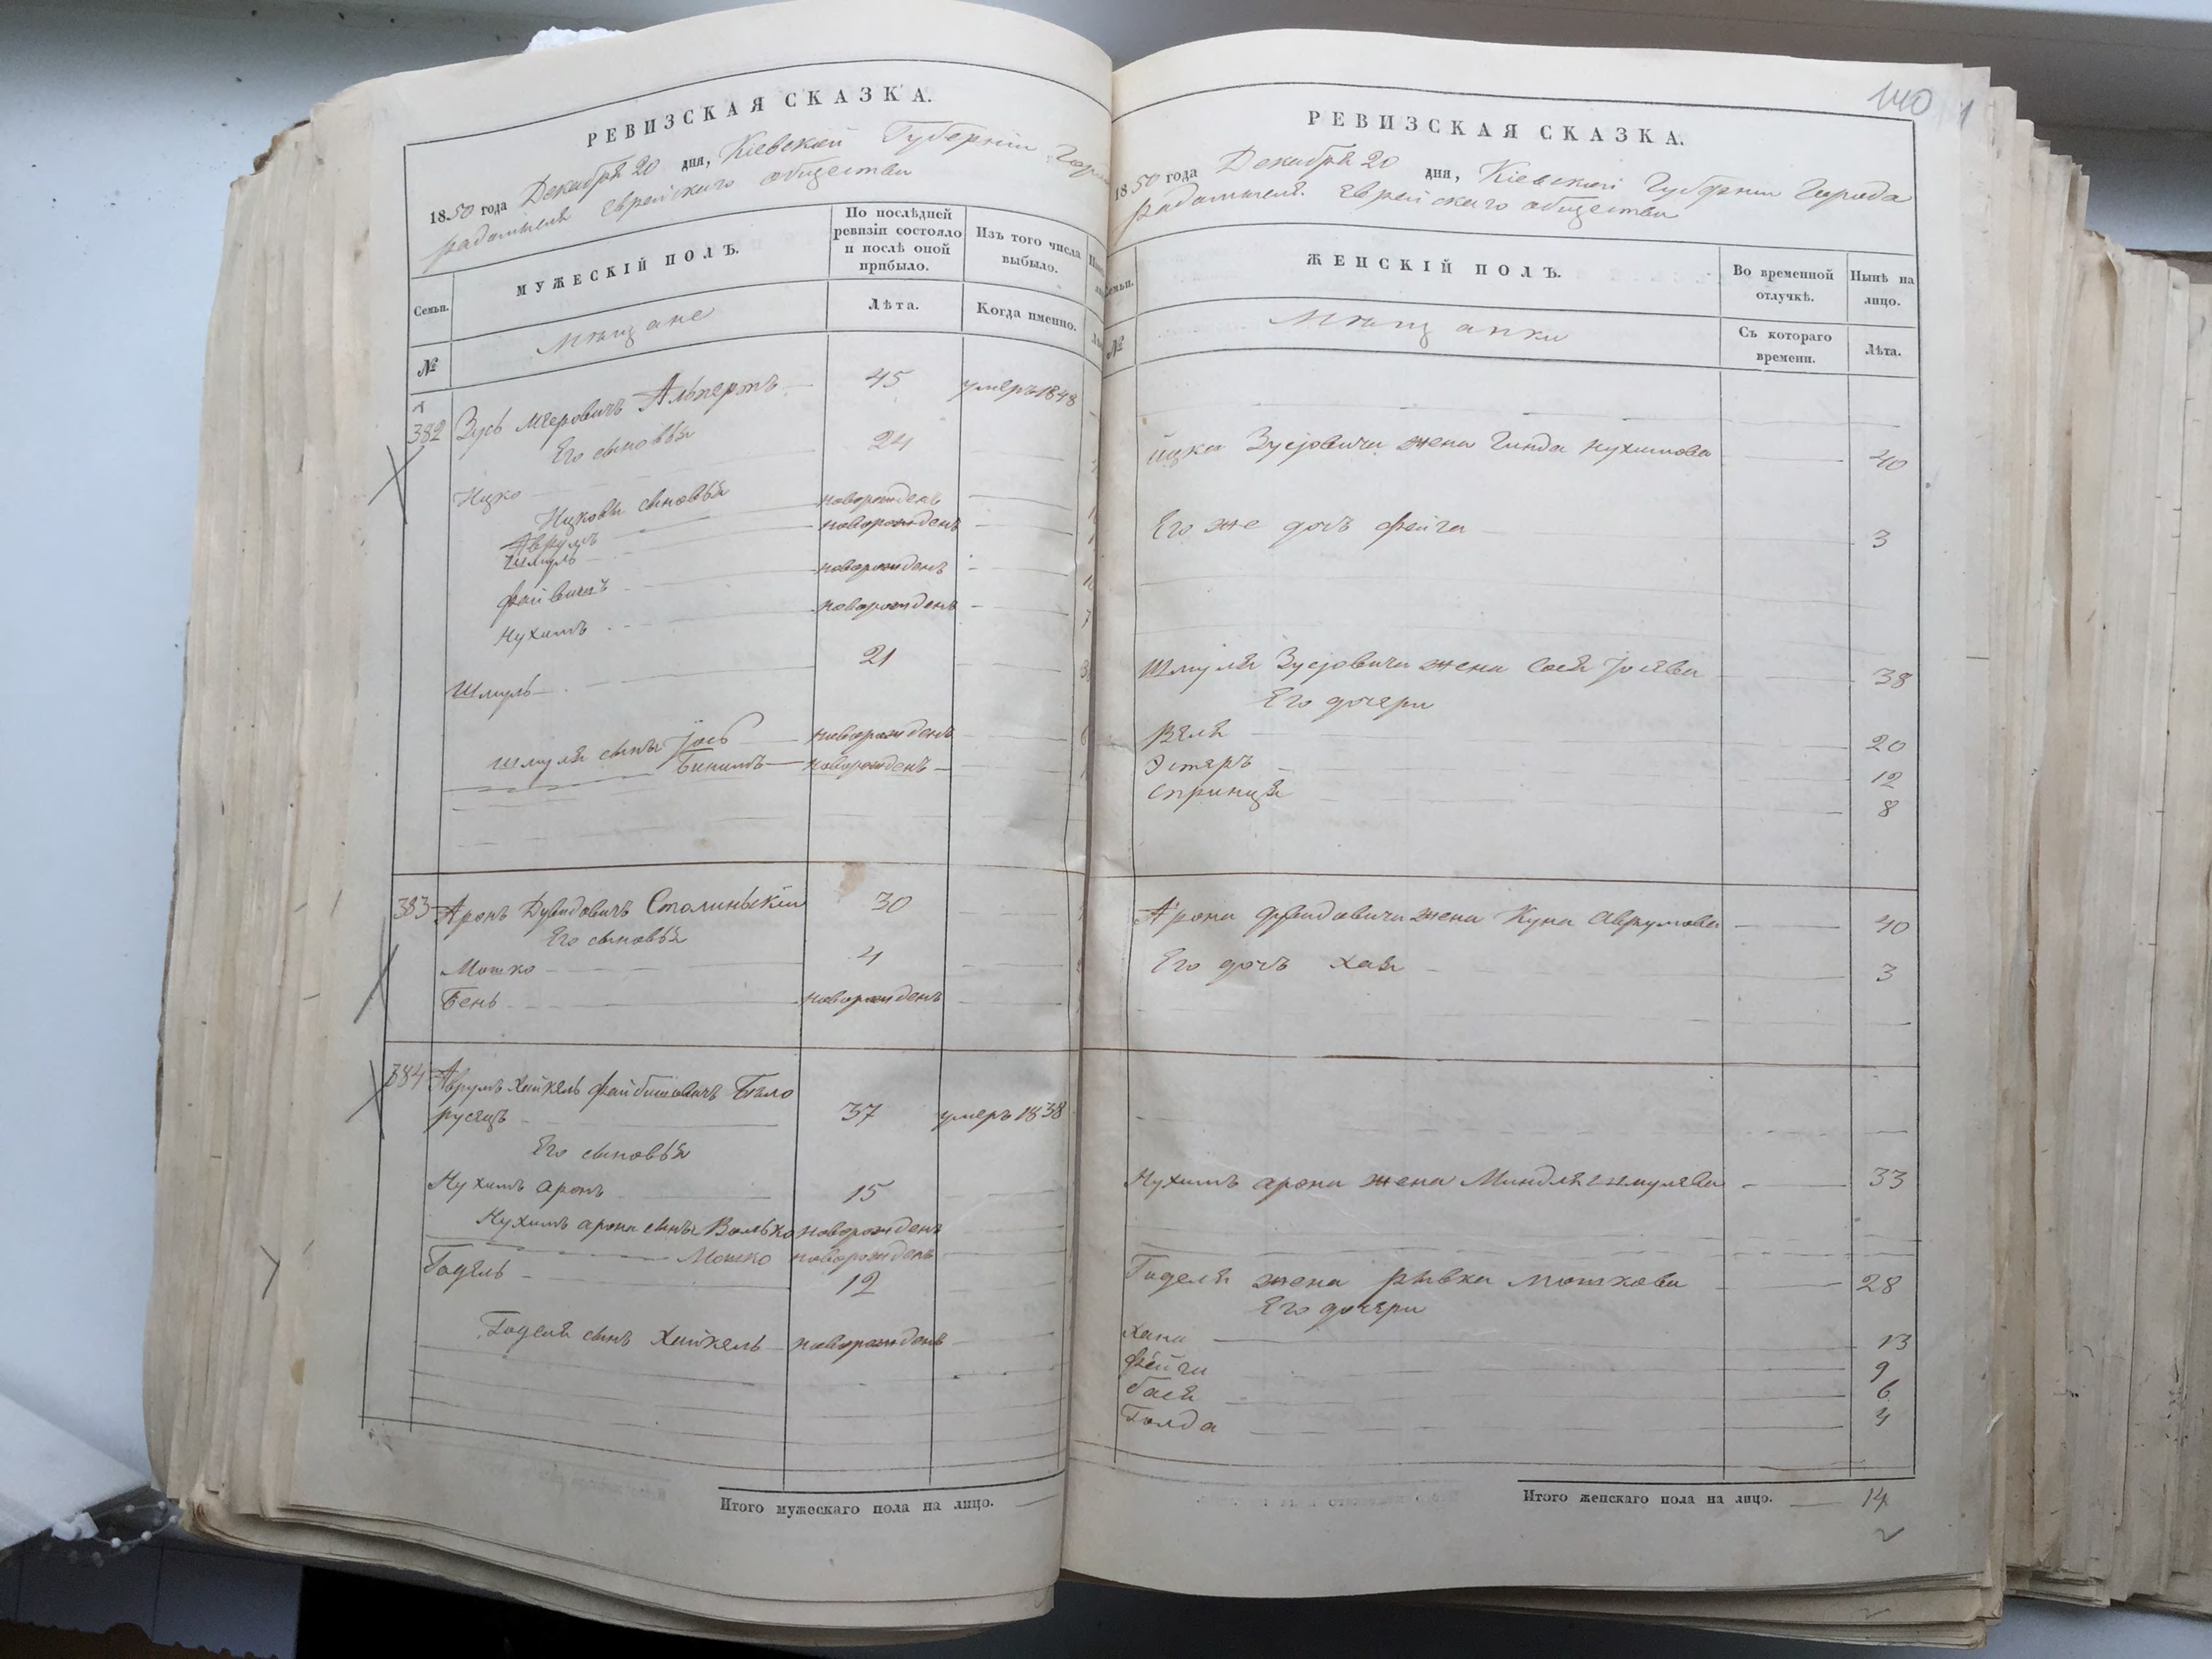 РЕВИЗСКАЯ СКАЗКА.
1850 года Декабря 20 дня, Кіевской Губерніи
Радомысля Еврейского общества
Семьи.
МУЖЕСКІЙ ПОЛЪ.
По послѣдней ревизіи состояло и послѣ оной прибыло.
Изъ того числа выбыло.
№
Мѣщане
Лѣта.
Когда именно.
382 Зусь Меровичъ Альпертъ 45 умеръ 1848
Его сыновья
Ицко 24
Ицковы сыновья
Аврумъ новорожденъ
Шмуль новорожденъ
Файвишъ новорожденъ
Нухимъ новорожденъ
Шмуль 21
Шмуля сыны Іось новорожденъ
Бинимъ новорожденъ
383 Аронъ Дувидовичъ Столинскій 30
Его сыновья
Мошко 4
Бень новорожденъ
384 Аврумъ Хайкель Файбишовичъ Бѣло
русецъ 37 умеръ 1838
Его сыновья
Нухимъ Аронъ 15
Нухимъ Арона сыны Волько новорожденъ
Мошко новорожденъ
Годель 12
Годеля сынъ Хайкель новорожденъ
Итого мужескаго пола на лицо.
140
РЕВИЗСКАЯ СКАЗКА.
1850 года Декабря 20 дня, Кіевской Губерніи Города
Радомысля Еврейского общества
Семьи.
ЖЕНСКІЙ ПОЛЪ.
Во временной отлучкѣ.
Нынѣ на лицо.
№
Мѣщанки
Съ котораго времени.
Лѣта.
Ицка Зусевича жена Гинда Нухимова 40
Его же дочь Фейга 3
Шмуля Зусевича жена Сося Іосева 38
Его дочери
Веля 20
Эстеръ 12
Спринця 8
Арона Дувидовича жена Куна Аврумова 40
Его дочь Хая 3
Нухимъ Арона жена Миндля Шмулева 33
Годеля жена Рывка Мошкова 28
Его дочери
Хана 13
Фейга 9
Бася 6
Голда 4
Итого женскаго пола на лицо. 14